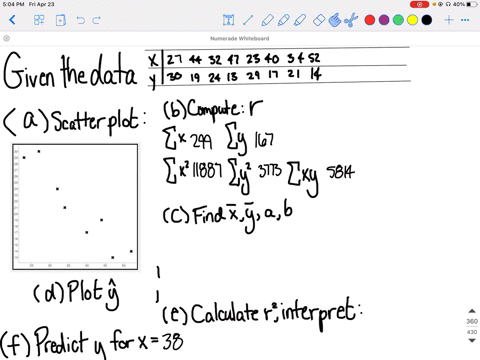 5:04 PM Fri Apr 23
40%
Numerade Whiteboard
Given the data
x 27 44 32 47 23 40 34 52
y 30 19 24 13 29 17 21 14
(a) Scatter plot:
(b) Compute: r
∑x 299 ∑y 167
∑x² 11887 ∑y² 3773 ∑xy 5814
(c) Find x̄, ȳ, a, b
(d) Plot ŷ
(e) Calculate r², interpret:
(f) Predict y for x = 38
360
430